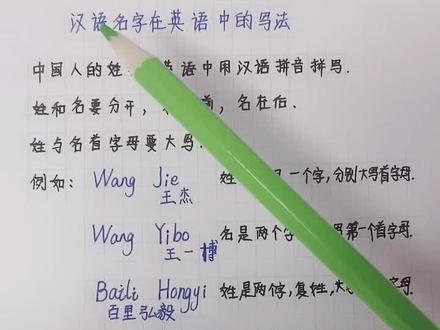 汉语名字在英语中的写法
中国人的姓 英语中用汉语拼音拼写.
姓和名要分开, 前, 名在后.
姓与名首字母要大写.
例如: Wang Jie 姓 一个字, 分别大写首字母.
王杰
Wang Yibo 名是两个字 第一个首字母.
王一博
Baili Hongyi 姓是两个字, 复姓, 大 字母.
百里弘毅